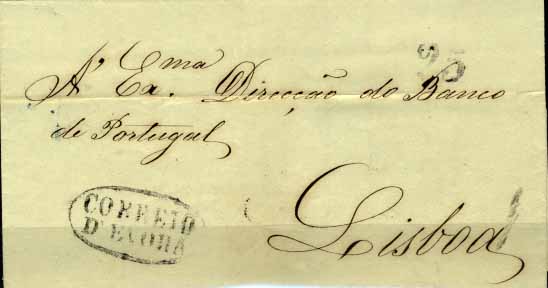 25
A' Exª. ma Direcção do Banco
de Portugal
Lisboa
CORREIO
D'EVORA